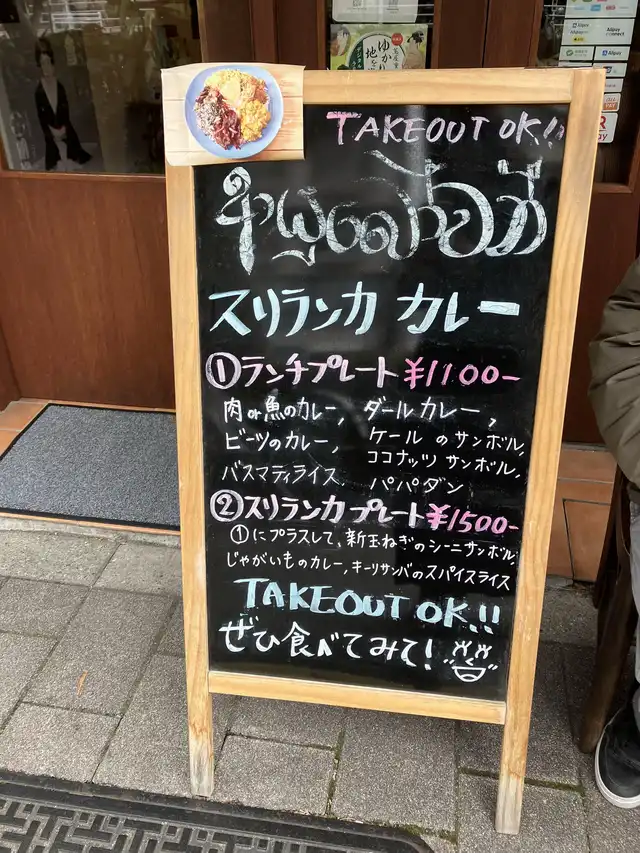 TAKEOUT OK!!
スリランカ カレー
①ランチプレート ¥1100-
肉or魚のカレー, ダールカレー,
ビーツのカレー, ケールのサンボル,
ココナッツサンボル,
バスマティライス, パパダン
②スリランカプレート¥1500-
①にプラスして、新玉ねぎのシーニサンボル,
じゃがいものカレー, キーリサンバのスパイスライス
TAKEOUT OK!!
ぜひ食べてみて!